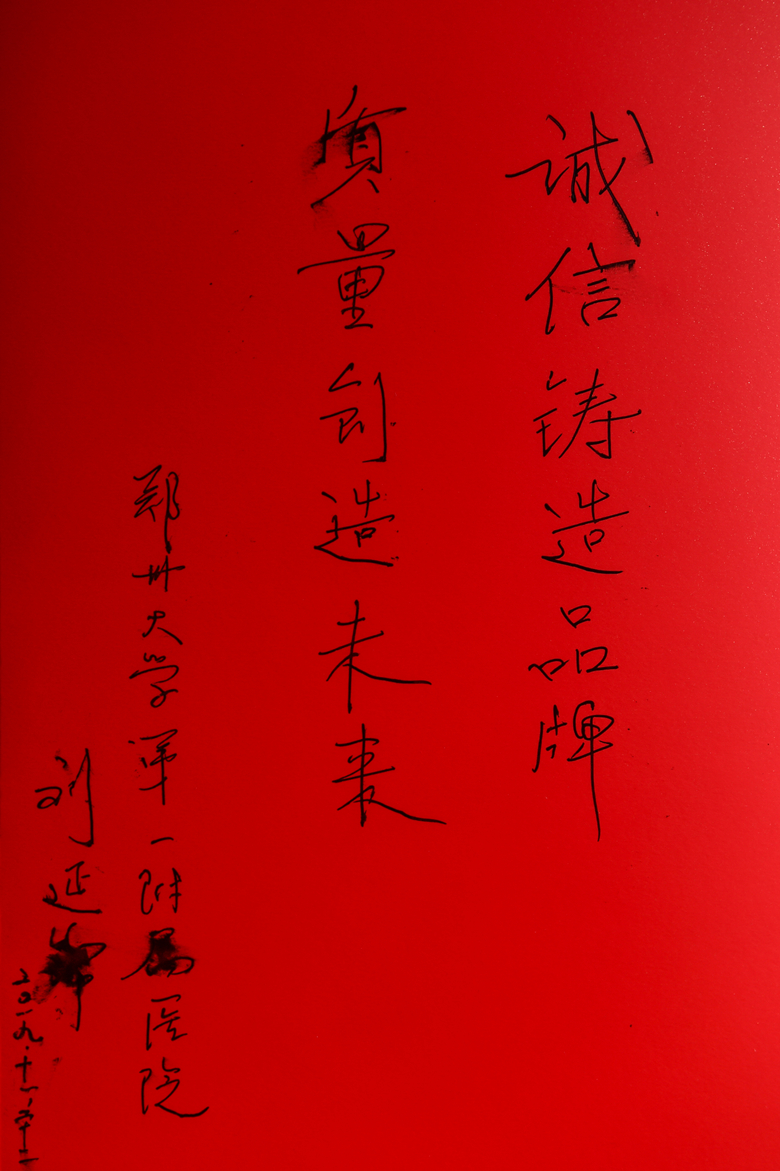 诚信铸造品牌
质量创造未来
郑州大学第一附属医院
刘延
二〇一九.十